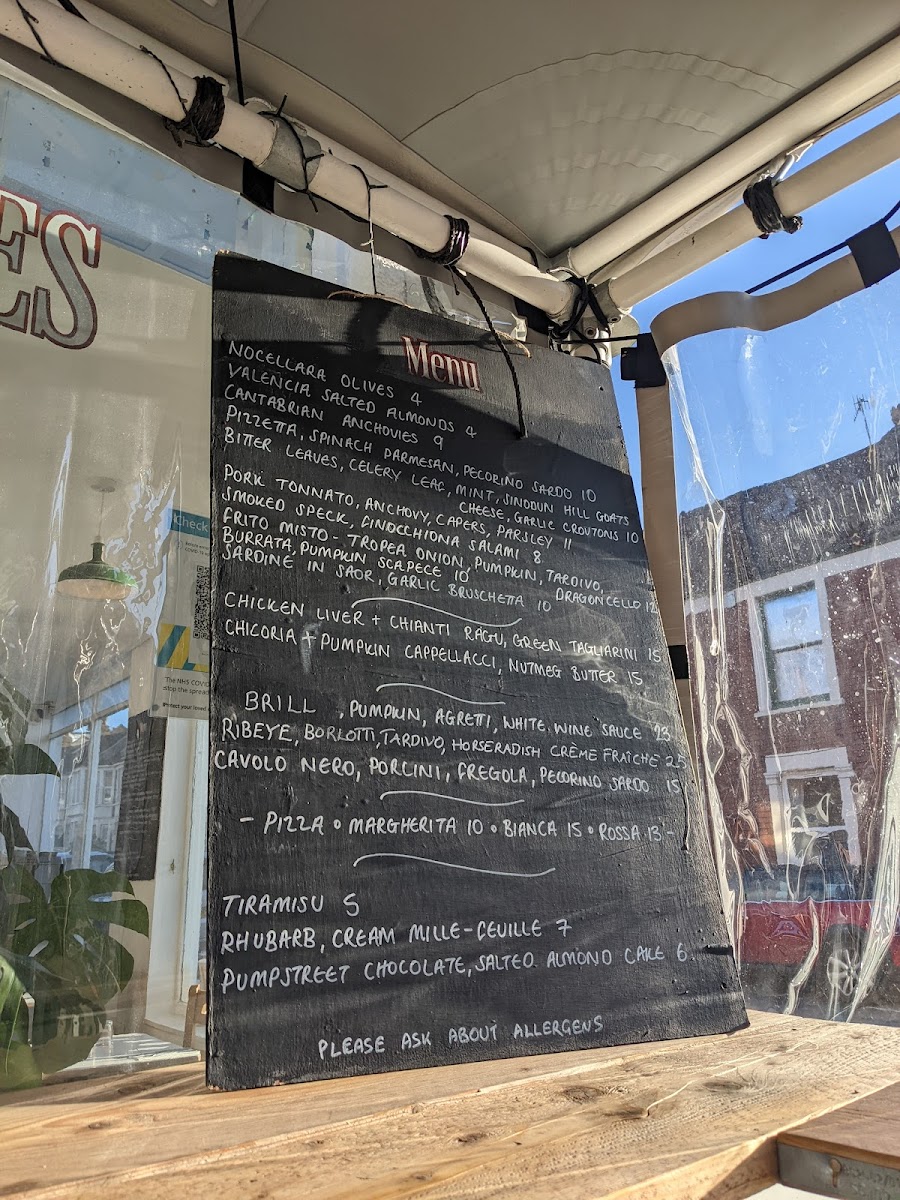 ES
Menu
NOCELLARA OLIVES 4
VALENCIA SALTED ALMONDS 4
CANTABRIAN ANCHOVIES 9
PIZZETTA, SPINACH PARMESAN, PECORINO SARDO 10
BITTER LEAVES, CELERY LEAF, MINT, SINODUN HILL GOATS
CHEESE, GARLIC CROUTONS 10
PORK TONNATO, ANCHOVY, CAPERS, PARSLEY 11
SMOKED SPECK, FINOCCHIONA SALAMI 8
FRITO MISTO - TROPEA ONION, PUMPKIN, TARDIVO,
DRAGONCELLO 12
BURRATA, PUMPKIN SCAPECE 10
SARDINE IN SAOR, GARLIC BRUSCHETTA 10
CHICKEN LIVER + CHIANTI RAGU, GREEN TAGLIARINI 15
CHICORIA + PUMPKIN CAPPELLACCI, NUTMEG BUTTER 15
BRILL , PUMPKIN, AGRETTI, WHITE WINE SAUCE 23
RIBEYE, BORLOTTI, TARDIVO, HORSERADISH CRÈME FRAÎCHE 25
CAVOLO NERO, PORCINI, FREGOLA, PECORINO SARDO 15
- PIZZA • MARGHERITA 10 • BIANCA 15 • ROSSA 13 -
TIRAMISU 5
RHUBARB, CREAM MILLE-FEUILLE 7
PUMPSTREET CHOCOLATE, SALTED ALMOND CAKE 6
PLEASE ASK ABOUT ALLERGENS
check
The NHS COVID
stop the spread